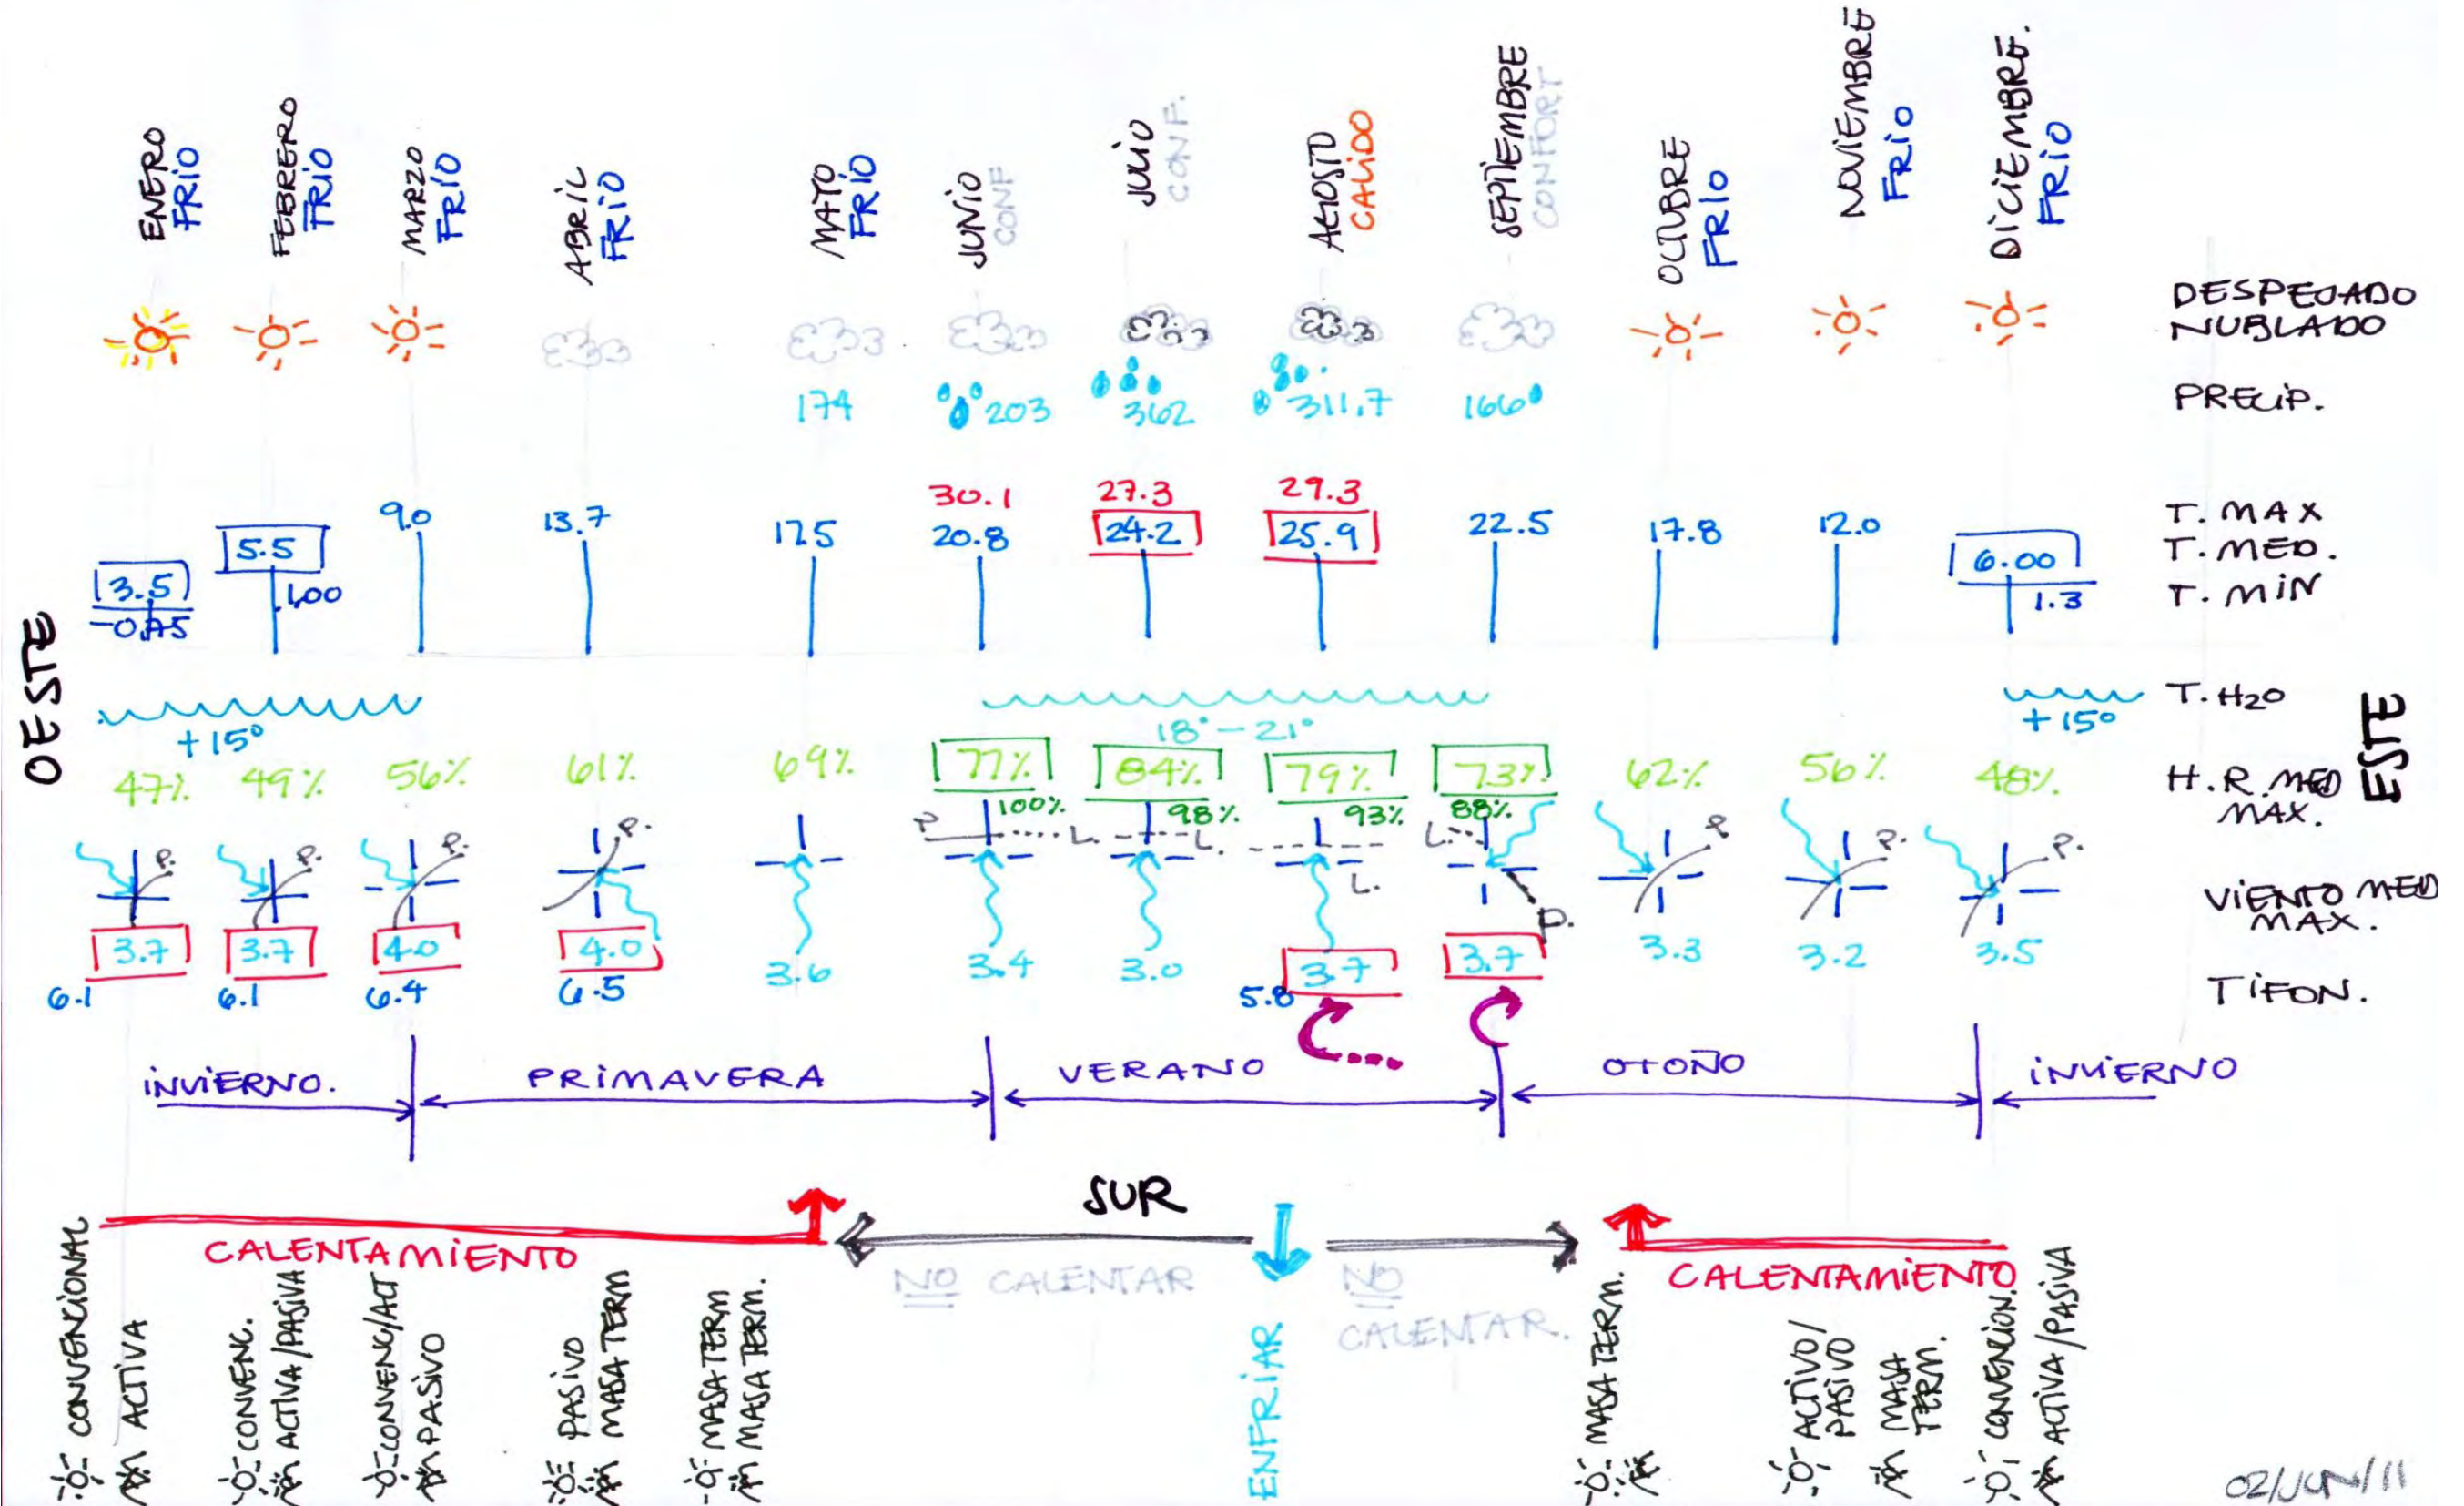 ENERO
FRIO
FEBRERO
FRIO
MARZO
FRIO
ABRIL
FRIO
MAYO
FRIO
JUNIO
CONF
JULIO
CONF.
AGOSTO
CALIDO
SEPTIEMBRE
CONFORT
OCTUBRE
FRIO
NOVIEMBRE
FRIO
DICIEMBRE.
FRIO
DESPEJADO
NUBLADO
174 203 362 311,7 166 PRECIP.
30.1 27.3 29.3 T. MAX
3.5 5.5 9.0 13.7 17.5 20.8 24.2 25.9 22.5 17.8 12.0 6.00 T. MED.
1,00 1.3 T. MIN
OESTE
+15° 18°-21° +15° T. H2O
ESTE
47% 49% 56% 61% 69% 77% 84% 79% 73% 62% 56% 48% H.R. MED
100% 98% 93% 88% MAX.
P. P. P. P. P L. L. L. L... P. P P. P.
3.7 3.7 4.0 4.0 3.6 3.4 3.0 3.7 3.7 3.3 3.2 3.5 VIENTO MED
6.1 6.1 6.4 6.5 5.8 MAX.
TIFON.
INVIERNO. PRIMAVERA VERANO OTOÑO INVIERNO
SUR
CALENTAMIENTO NO CALENTAR NO CALENTAR. CALENTAMIENTO
ENFRIAR
CONVENCIONAL
ACTIVA
CONVENC.
ACTIVA/PASIVA
CONVENC/ACT
PASIVO
PASIVO
MASA TERM
MASA TERM
MASA TERM.
MASA TERM.
ACTIVO/
PASIVO
MASA
TERM.
CONVENCION.
ACTIVA/PASIVA
02/JUN/11